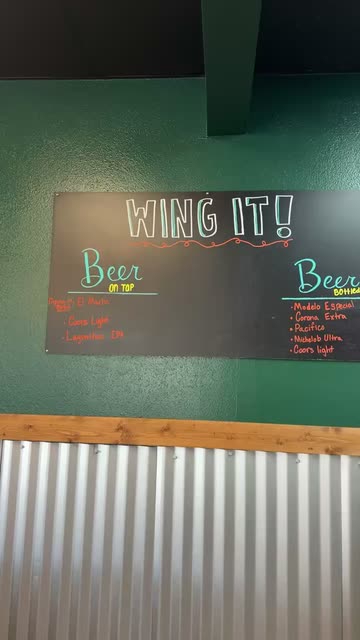 WING IT!
Beer
ON TAP
El Macho
• Coors Light
• Lagunitas IPA
Beer
BOTTLED
• Modelo Especial
• Corona Extra
• Pacifico
• Michelob Ultra
• Coors light